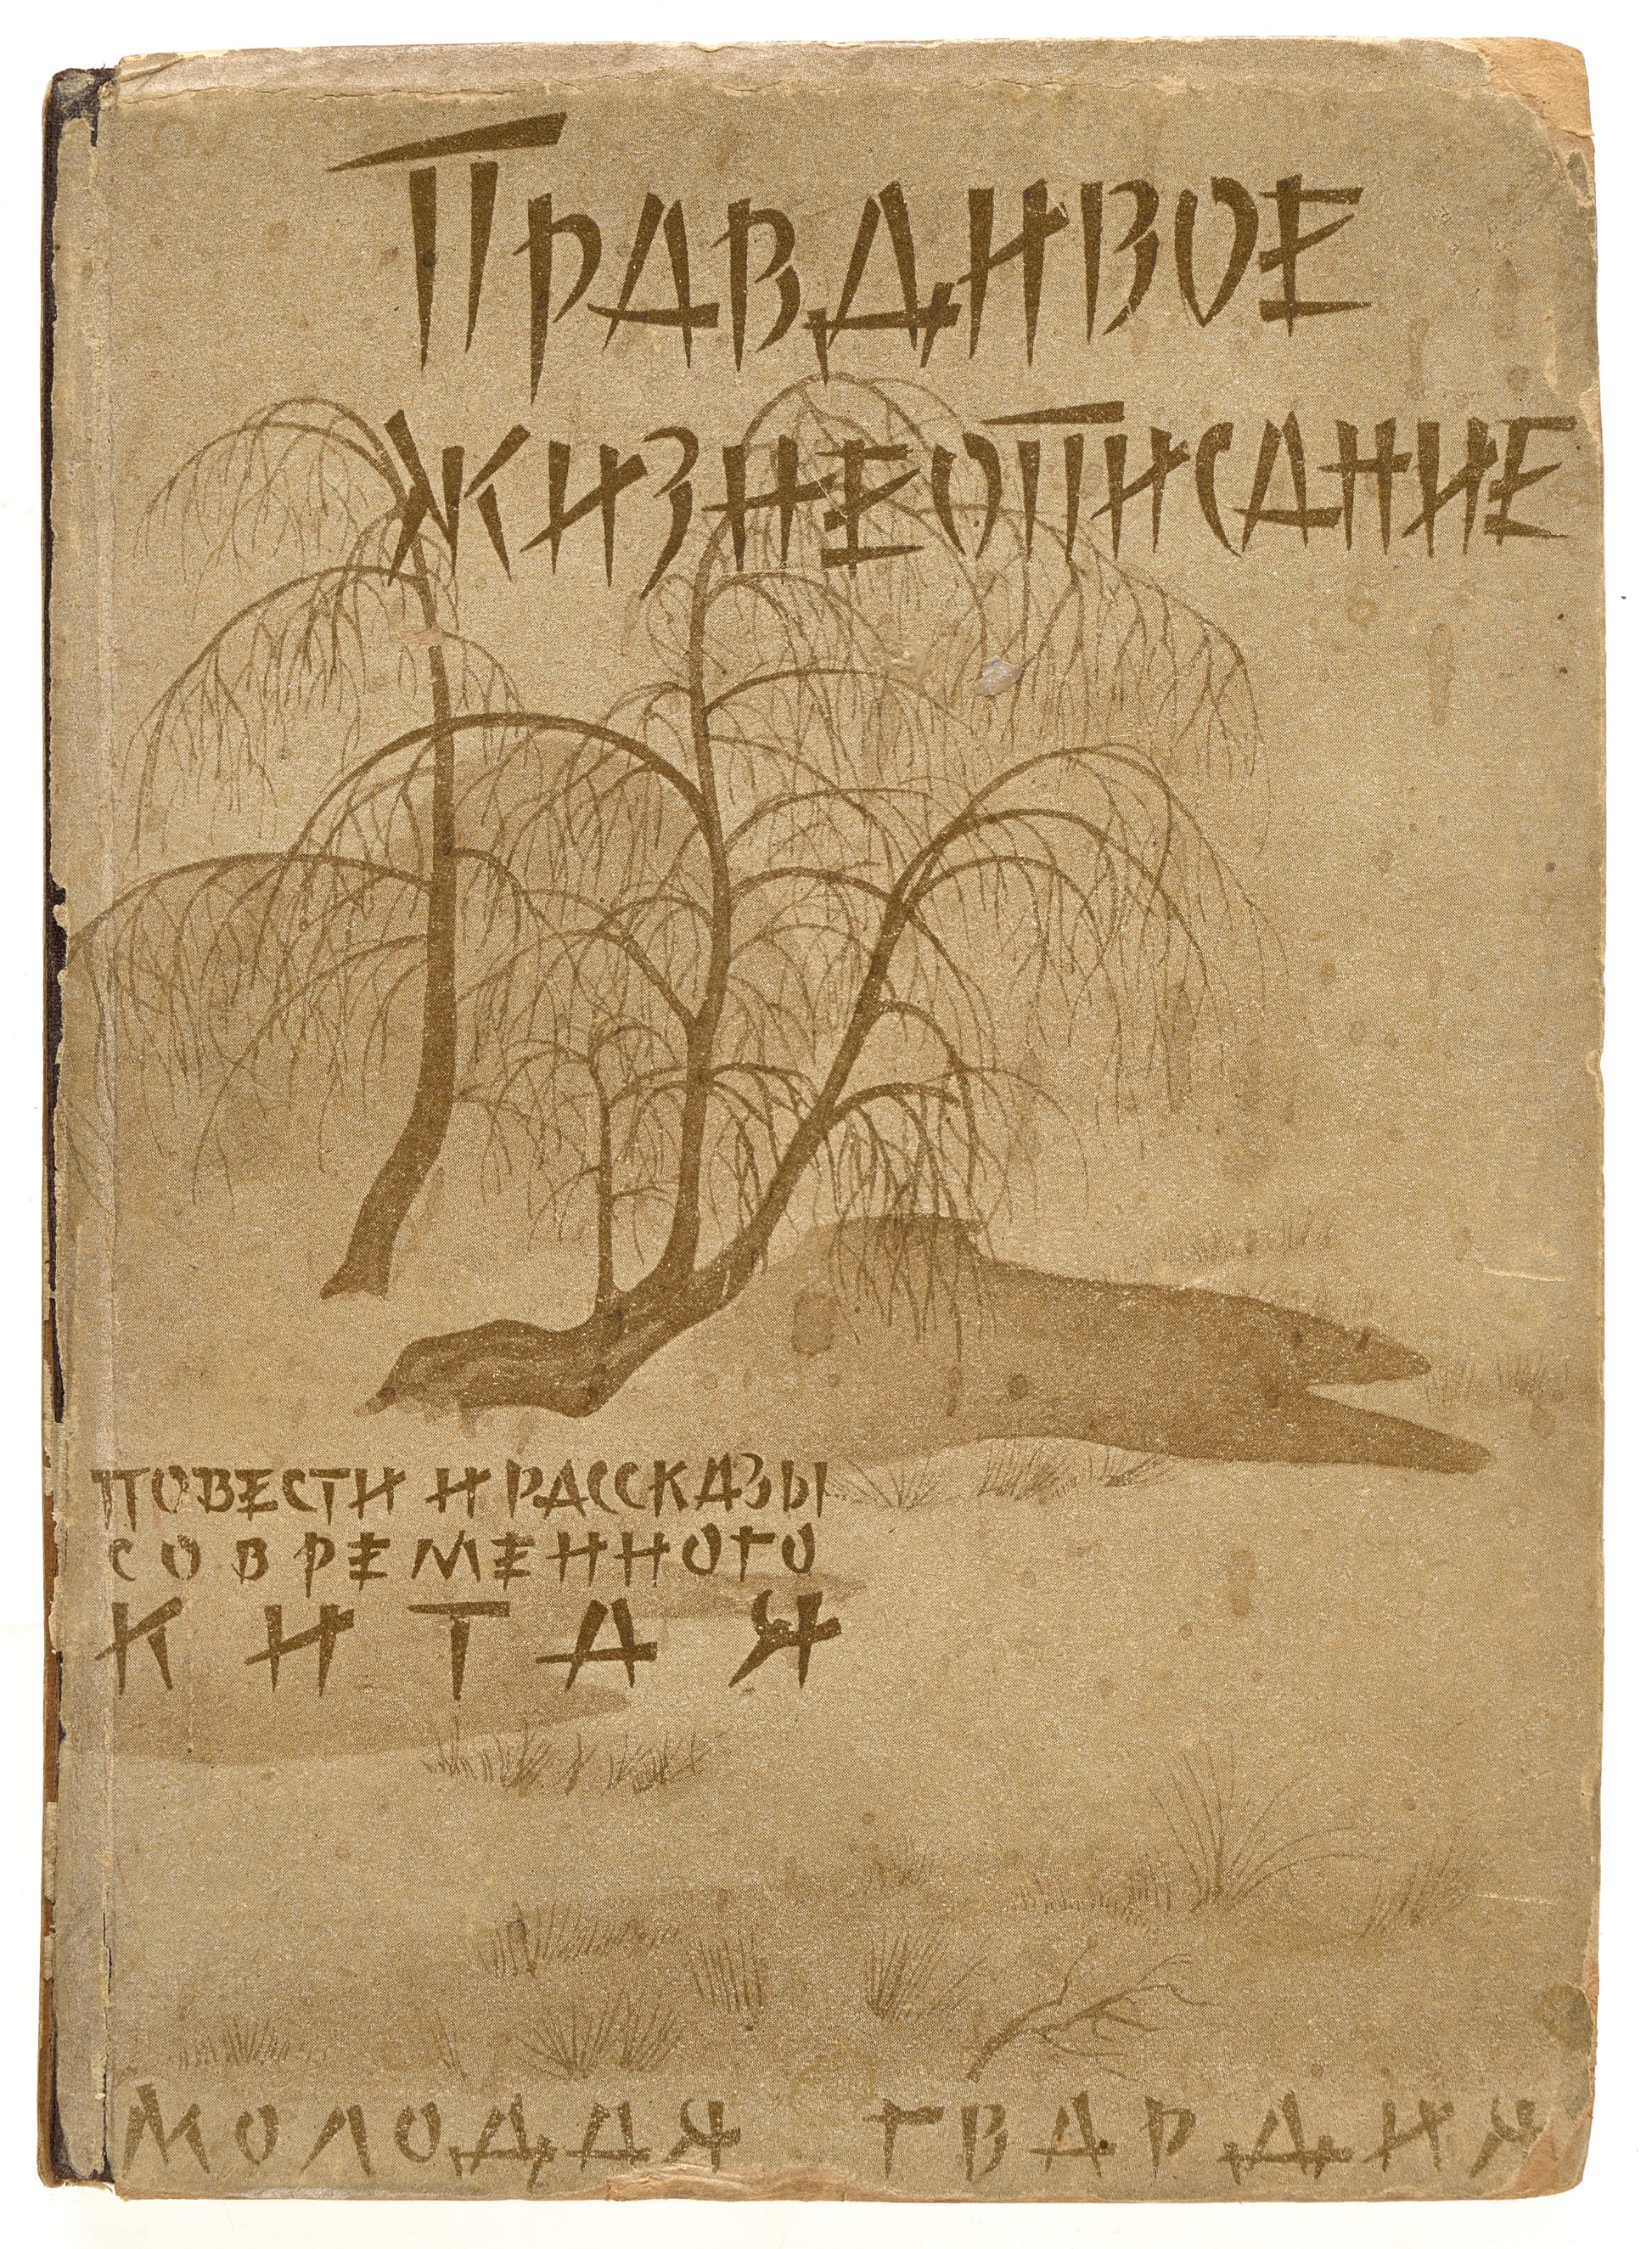 Правдивое
жизнеописание
повести и рассказы
современного
Китая
молодая гвардия